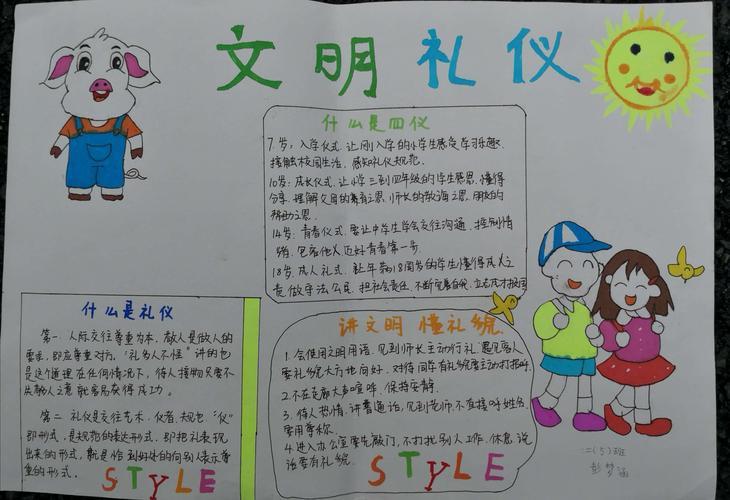 文明礼仪
什么是四仪
7岁：入学仪式．让刚入学的小学生感受学习乐趣．
接触校园生活．感知礼仪规范．
10岁：成长仪式．让小学三到四年级的学生感恩．懂得
分享．理解父母的养育之恩．师长的教诲之恩．朋友的
帮助之恩．
14岁：青春仪式．要让中学生学会交往沟通．控制情
绪．包容他人迈好青春第一步．
18岁．成人礼式．
什么是礼仪
第一．人际交往尊重为本．敬人是做人的
要求．即应尊重对方．"礼多人不怪"讲的也
是这个道理．在任何情况下．待人接物只要不
失敬人之意就容易获得成功．
第二．礼仪是交往艺术．仪者．规也．"仪"
即形式，是规范的表达形式．即把礼表现
出来的形式．就是恰到好处的向别人表示尊
重的形式．
STYLE
讲文明 懂礼貌
1.会使用文明用语．见到师长主动行礼．遇见客人
要礼貌大方地问好．对待同学有礼貌要主动打招呼．
2.不在走廊大声喧哗．保持安静．
3.待人热情．讲普通话，见到老师．不直接呼姓名
要用尊称．
4.进入办公室要先敲门，不打扰别人工作．休息．说
话要有礼貌．
STYLE
二(5)班
彭梦涵